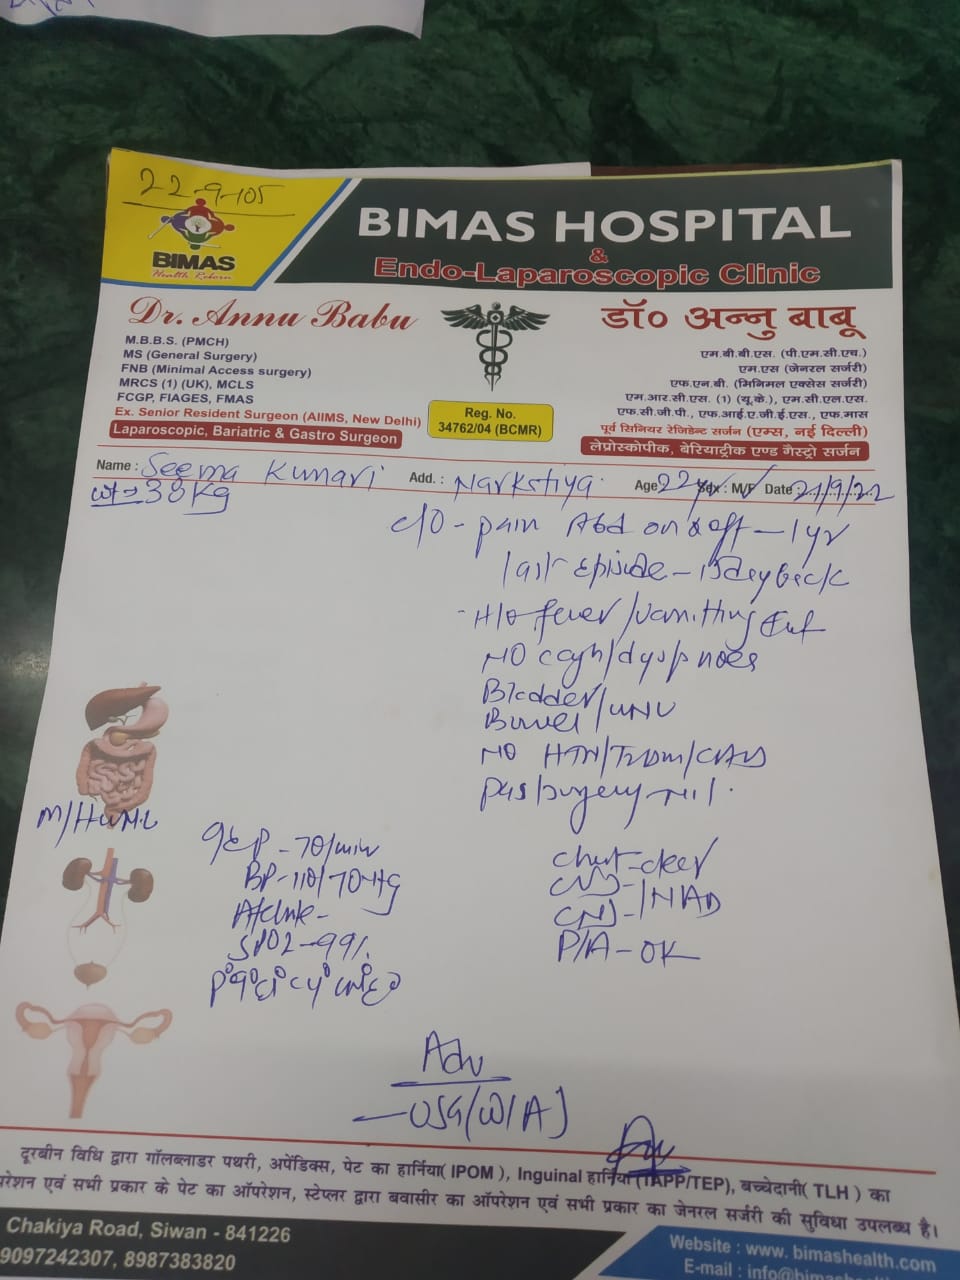 22-9-105
BIMAS
Health Reborn
BIMAS HOSPITAL
&
Endo-Laparoscopic Clinic
Dr. Annu Babu
M.B.B.S. (PMCH)
MS (General Surgery)
FNB (Minimal Access surgery)
MRCS (1) (UK), MCLS
FCGP, FIAGES, FMAS
Ex. Senior Resident Surgeon (AIIMS, New Delhi)
Laparoscopic, Bariatric & Gastro Surgeon
Reg. No.
34762/04 (BCMR)
डॉ० अन्नु बाबू
एम.बी.बी.एस. (पी.एम.सी.एच.)
एम.एस (जेनरल सर्जरी)
एफ.एन.बी. (मिनिमल एक्सेस सर्जरी)
एम.आर.सी.एस. (1) (यू.के.), एम.सी.एल.एस.
एफ.सी.जी.पी., एफ.आई.ए.जी.ई.एस., एफ.मास
पूर्व सिनियर रेजिडेन्ट सर्जन (एम्स, नई दिल्ली)
लेप्रोस्कोपीक, बेरियाट्रीक एण्ड गैस्ट्रो सर्जन
Name : Seema Kumari Add. : Narkatiya Age 22yr Sex : M/F Date : 21/9/22
wt = 38 Kg
c/o - pain Abd on & off - 1 yr
last episode - 15 day back
H/o fever / vomitting
No cough / dyspnoea
Bladder /
Bowel / UNU
No HTN/T2DM/CAD
Past surgery - Nil.
P - 70/min
BP - 110/70 Hg
Afebrile -
SPO2 - 99%
Chest - clear
CVS -
CNS - / NAD
P/A - OK
Adv
- USG (W/A)
दूरबीन विधि द्वारा गॉलब्लाडर पथरी, अपेंडिक्स, पेट का हार्निया( IPOM ), Inguinal हार्निया (TAPP/TEP), बच्चेदानी( TLH ) का
परेशन एवं सभी प्रकार के पेट का ऑपरेशन, स्टेप्लर द्वारा बवासीर का ऑपरेशन एवं सभी प्रकार का जेनरल सर्जरी की सुविधा उपलब्ध है।
Chakiya Road, Siwan - 841226
9097242307, 8987383820
Website : www. bimashealth.com
E-mail : info@bimashealth